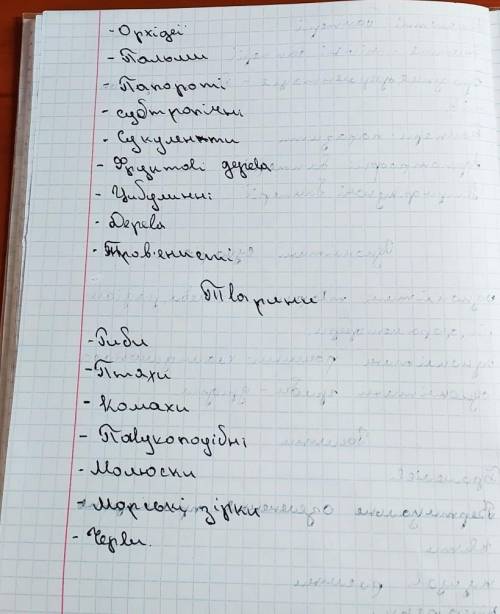 - Орхідеї
- Пальми
- Папороті
- субтропічні
- Сукуленти
- Фруктові дерева
- Цибулинні
- Дерева
- Трав'янисті
Тварини
- Риби
- Птахи
- Комахи
- Павукоподібні
- Молюски
- Морські зірки
- Черви.